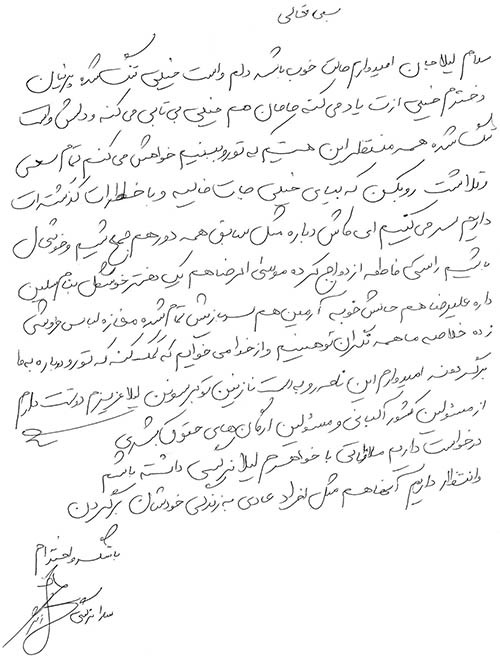 بسمه تعالی
سلام لیلا جان امیدوارم حالت خوب باشه دلم واست خیلی تنگ شده پرنیان
دخترم خیلی ازت یاد می کنه مامان هم خیلی بی تابی می کنه و دلش واست
تنگ شده همه منتظر این هستیم که تو رو ببینیم خواهش می کنم تمام سعی
و تلاشت رو بکن که بیای خیلی جات خالیه و با خاطرات گذشته ات
داریم سر می کنیم ای کاش دوباره مثل سابق همه دور هم جمع شیم و خوشحال
باشیم راستی فاطمه ازدواج کرده موسی الرضا هم یک دختر خوشگل بنام
داره علیرضا هم حالش خوبه آرمین هم سربازیش تمام شده مغازه لباس فروشی
زده خلاصه ما همه نگران تو هستیم و از خدا می خوایم که کمک کنه که تو دوباره به ما
برگردونه امیدوارم این نامه رو به دست نازنین تو برسونن لیلا عزیزم دوست دارم
از مسئولین کشور آلبانی و مسئولین ارگان های حقوق بشری
درخواست داریم ملاقاتی با خواهرم لیلا داشته باشیم
و انتظار داریم آنها هم مثل افراد عادی به زندگی خودشان برگردن
با تشکر و احترام